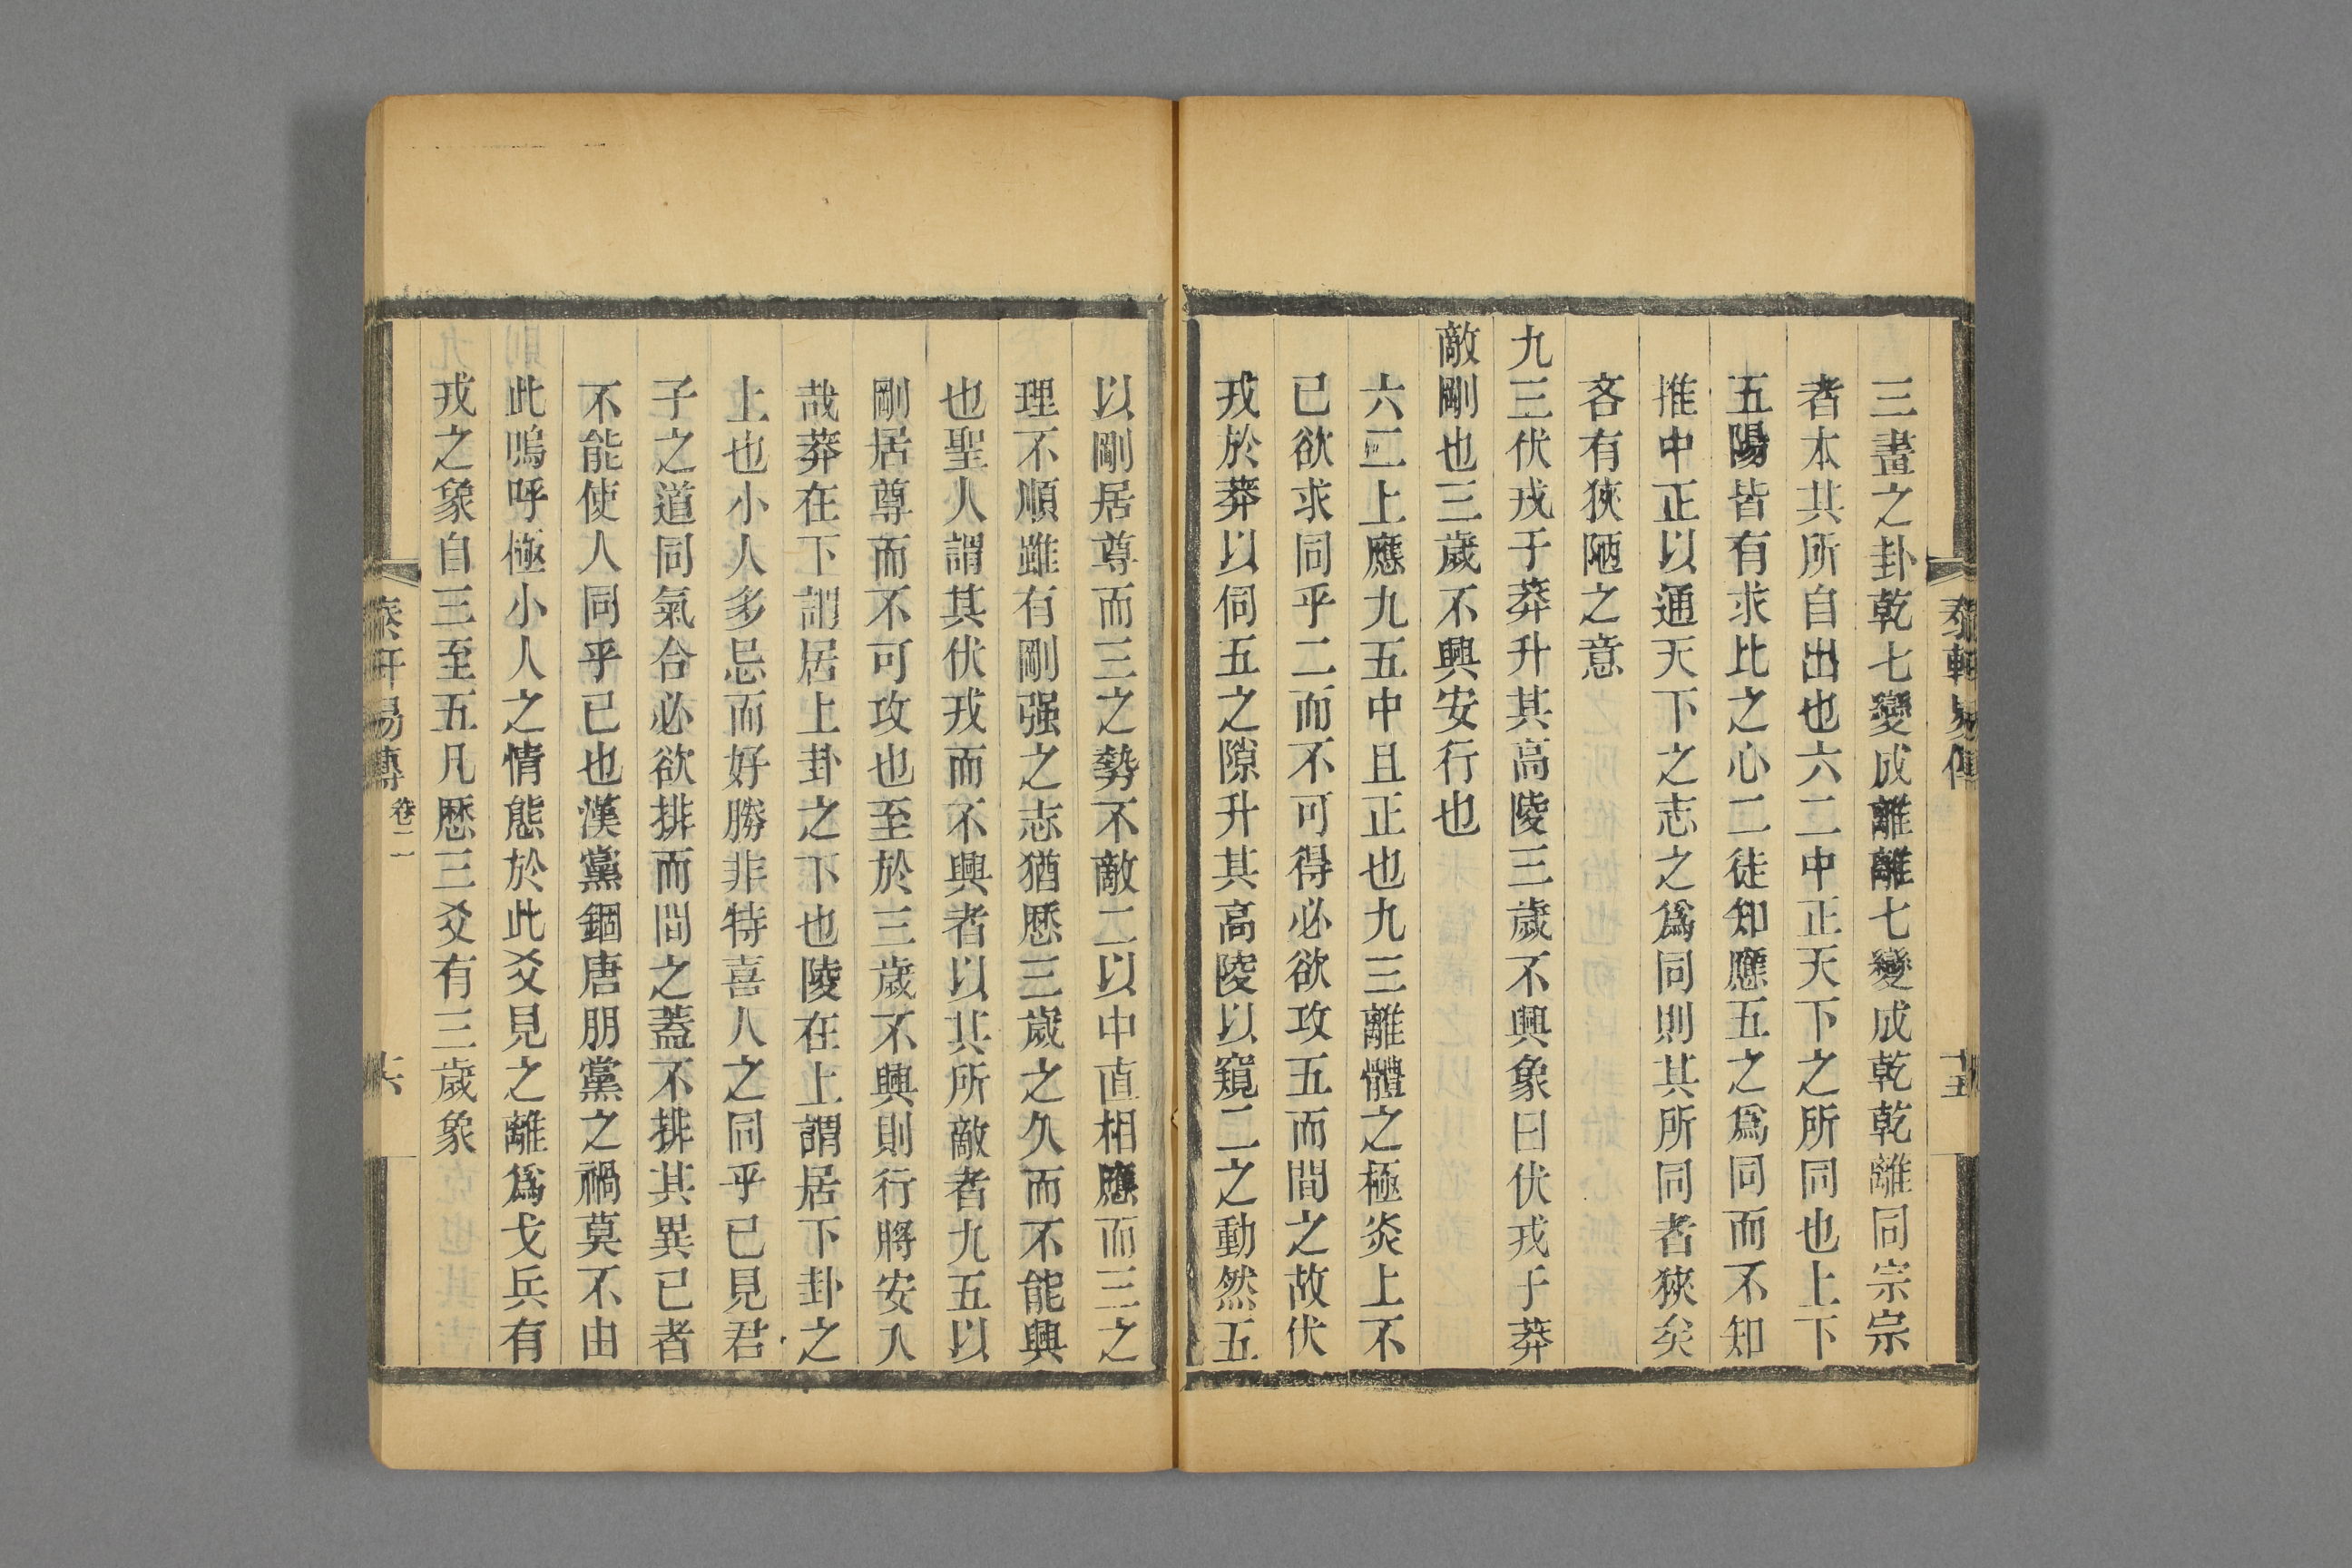 三畫之卦乾七變成離離七變成乾乾離同宗宗
者本其所自出也六二中正天下之所同也上下
五陽皆有求比之心二徒知應五之爲同而不知
推中正以通天下之志之爲同則其所同者狹矣
吝有狹陋之意
九三伏戎于莽升其高陵三歲不興象曰伏戎于莽
敵剛也三歲不興安行也
六二上應九五中且正也九三離體之極炎上不
已欲求同乎二而不可得必欲攻五而間之故伏
戎於莽以伺五之隙升其高陵以窺二之動然五
以剛居尊而三之勢不敵二以中直相應而三之
理不順雖有剛强之志猶歷三歲之久而不能興
也聖人謂其伏戎而不興者以其所敵者九五以
剛居尊而不可攻也至於三歲不興則行將安入
哉莽在下謂居上卦之下也陵在上謂居下卦之
上也小人多忌而好勝非特喜人之同乎已見君
子之道同氣合必欲排而間之蓋不排其異已者
不能使人同乎已也漢黨錮唐朋黨之禍莫不由
此嗚呼極小人之情態於此爻見之離爲戈兵有
戎之象自三至五凡歷三爻有三歲象
易傳
卷二